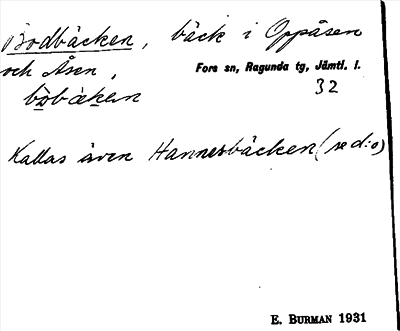 Bodbäcken, bäck i Oppåsen
och Åsen, Fors sn, Ragunda tg, Jämtl. l.
bòbäken 32
Kallas även Hannesbäcken (se d:o)
E. BURMAN 1931